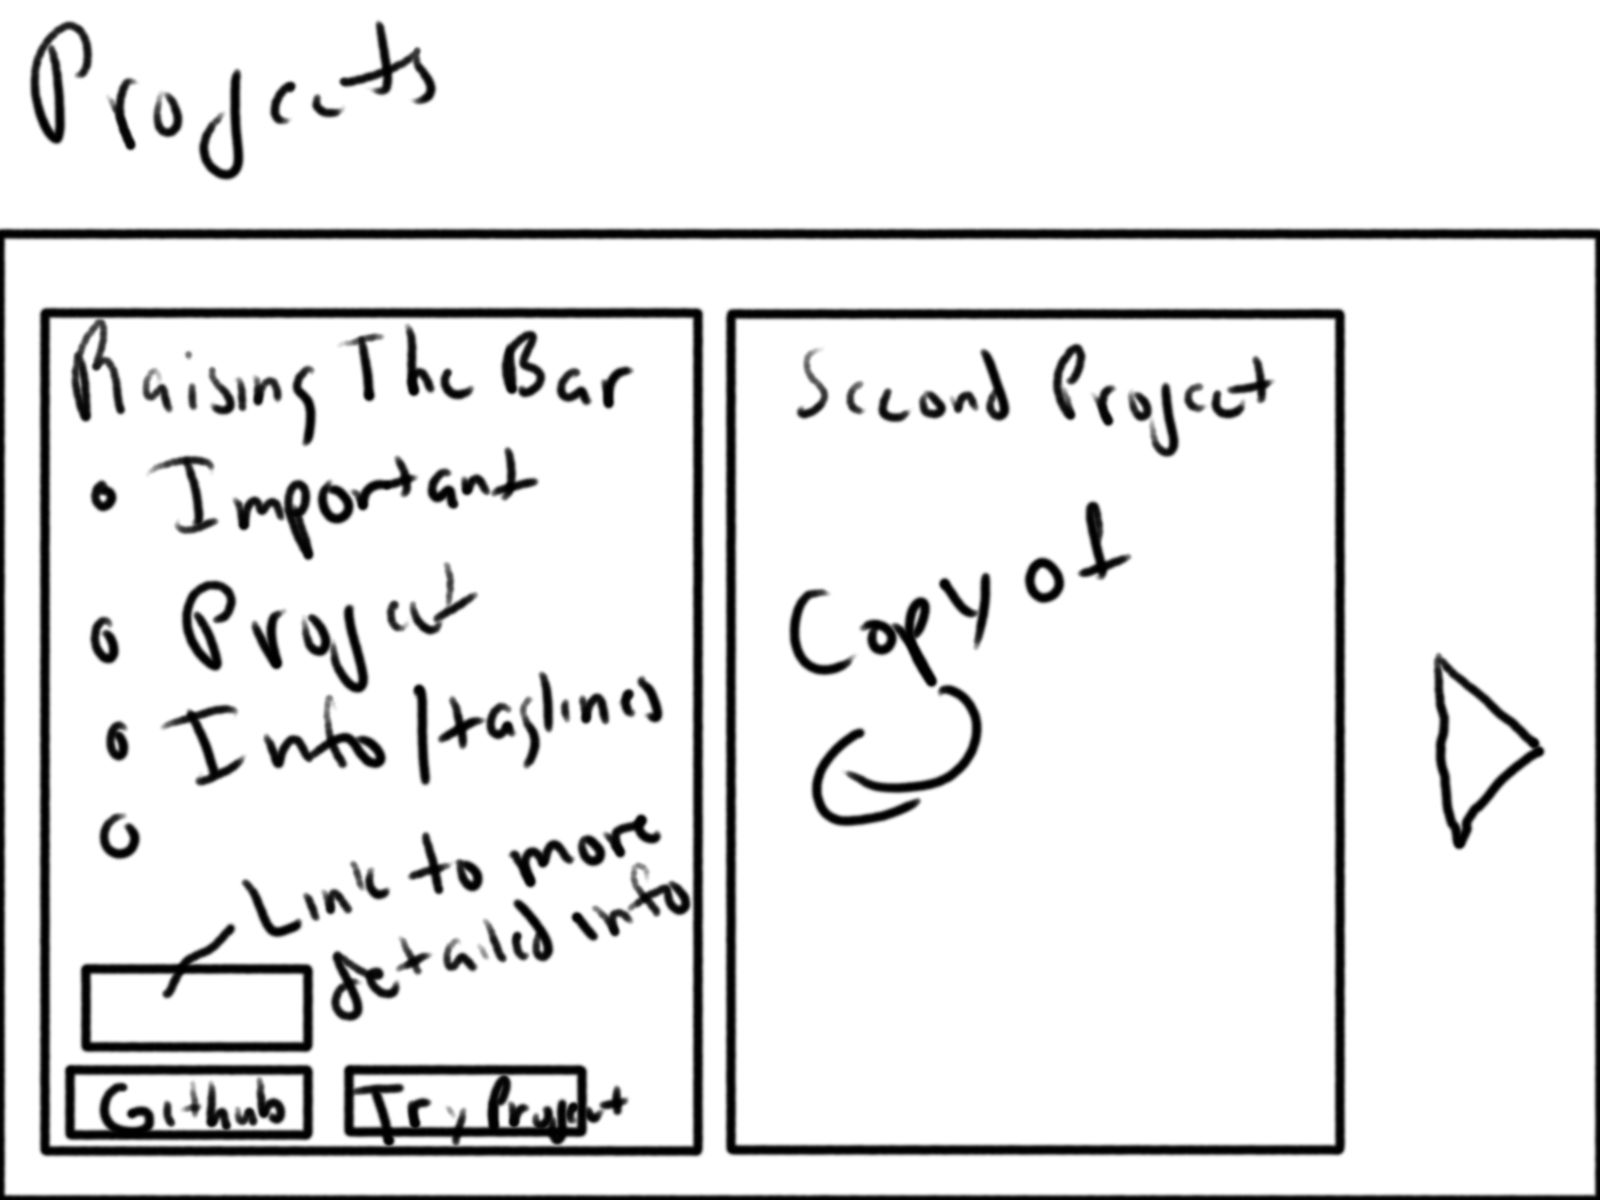 Projects
Raising The Bar
Important
Project
Info / taglines
Link to more
detailed info
Github
Try Project
Second Project
Copy of